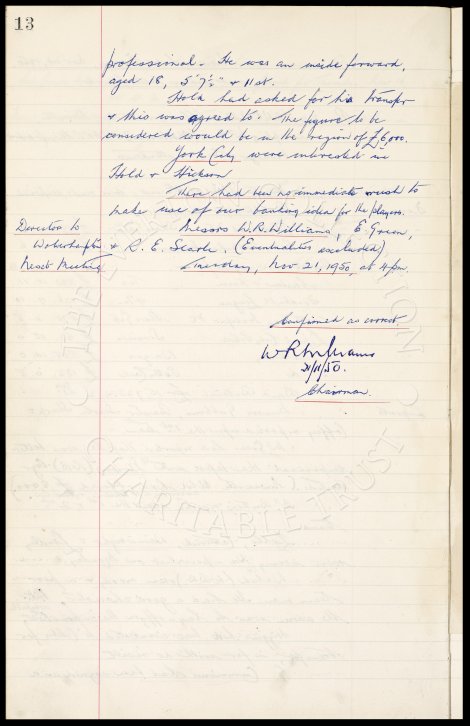 13
professional. He was an inside forward,
aged 18, 5' 7½" & 11 st.
Hold had asked for his transfer
& this was agreed to. The figure to be
considered would be in the region of £6,000.
York City were interested in
Hold & Hickson
There had been no immediate rush to
make use of our banking idea for the players.
Director to Messrs W.R. Williams, E. Green,
Wolverhampton & R. E. Searle. (Eventualities excluded)
Next Meeting Tuesday, Nov 21, 1950, at 4pm.
Confirmed as correct.
W R Williams
21/11/50.
Chairman.
CHARITABLE TRUST